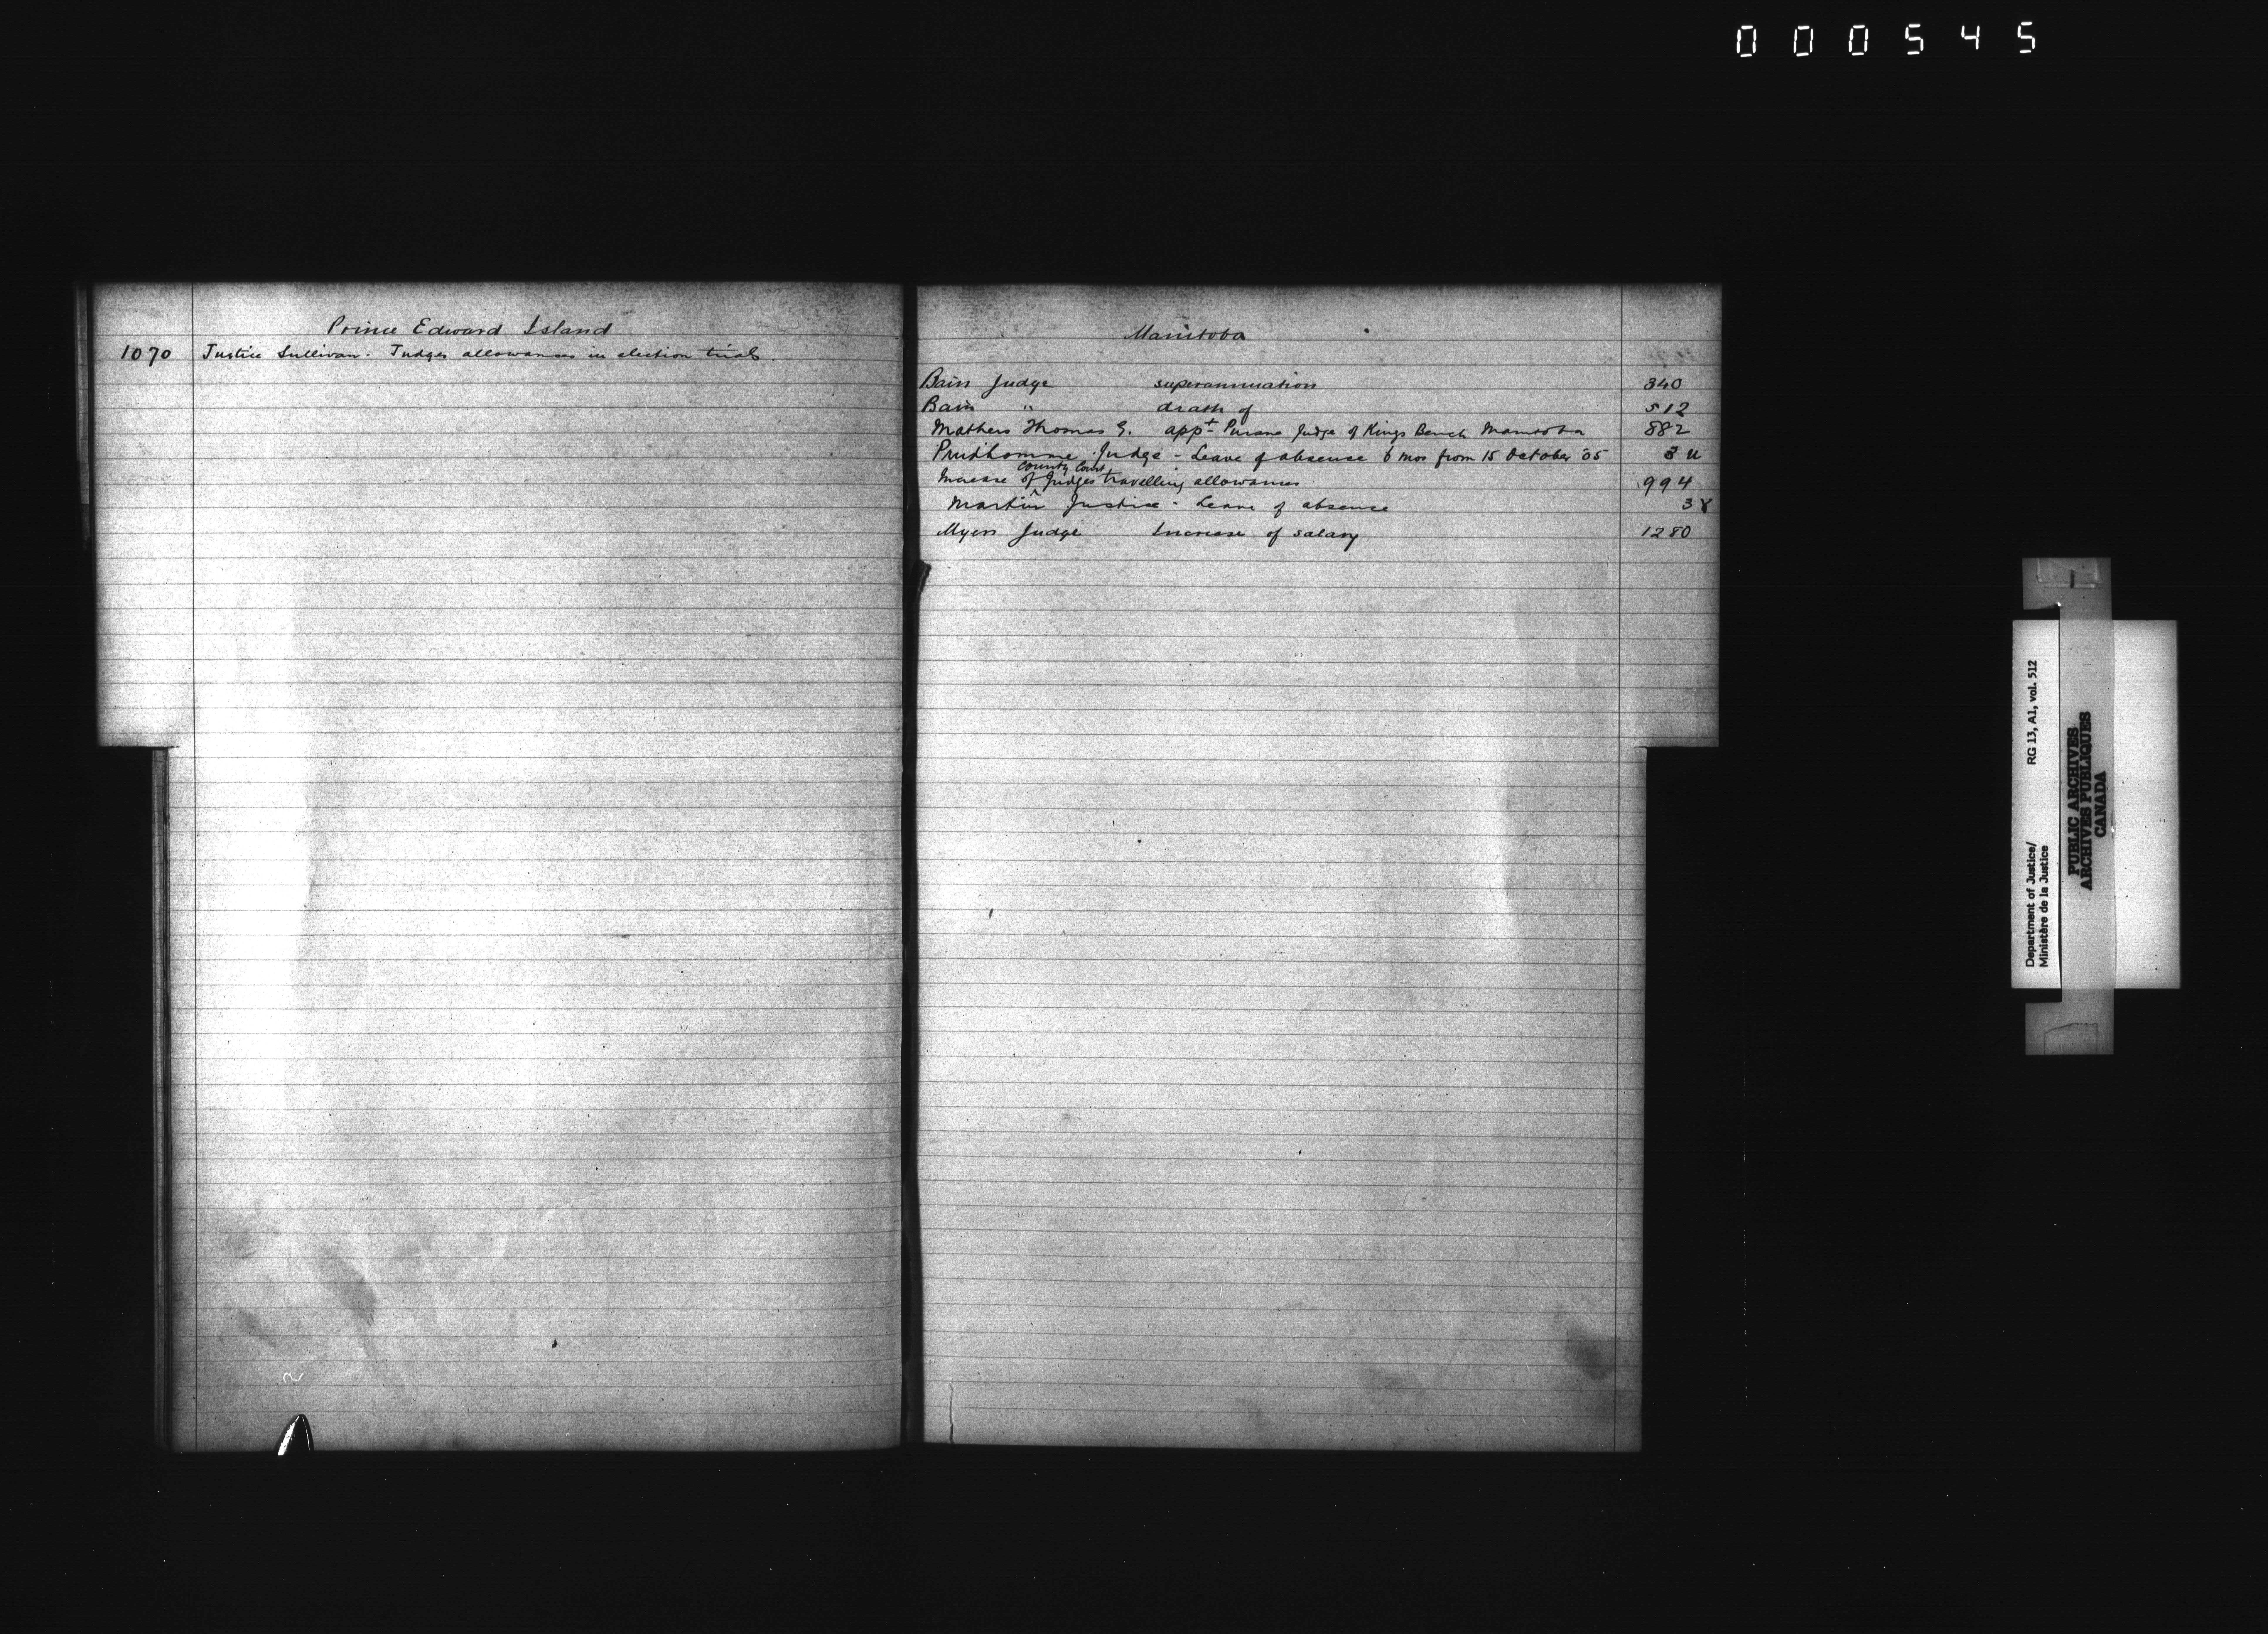 000545
Prince Edward Island
1070 Justice Sullivan - Judges allowances in election trials.
Manitoba
Bain Judge superannuation 340
Bain " death of 512
Mathers Thomas G. appt Puisne Judge of Kings Bench Manitoba 882
Prudhomme Judge - Leave of absence 6 mos from 15 October '05 3
Increase of County Court Judges travelling allowances 994
Martin Justice - Leave of absence 38
Myers Judge Increase of salary 1280
Department of Justice/ RG 13, A1, vol. 512
Ministère de la Justice
PUBLIC ARCHIVES
ARCHIVES PUBLIQUES
CANADA